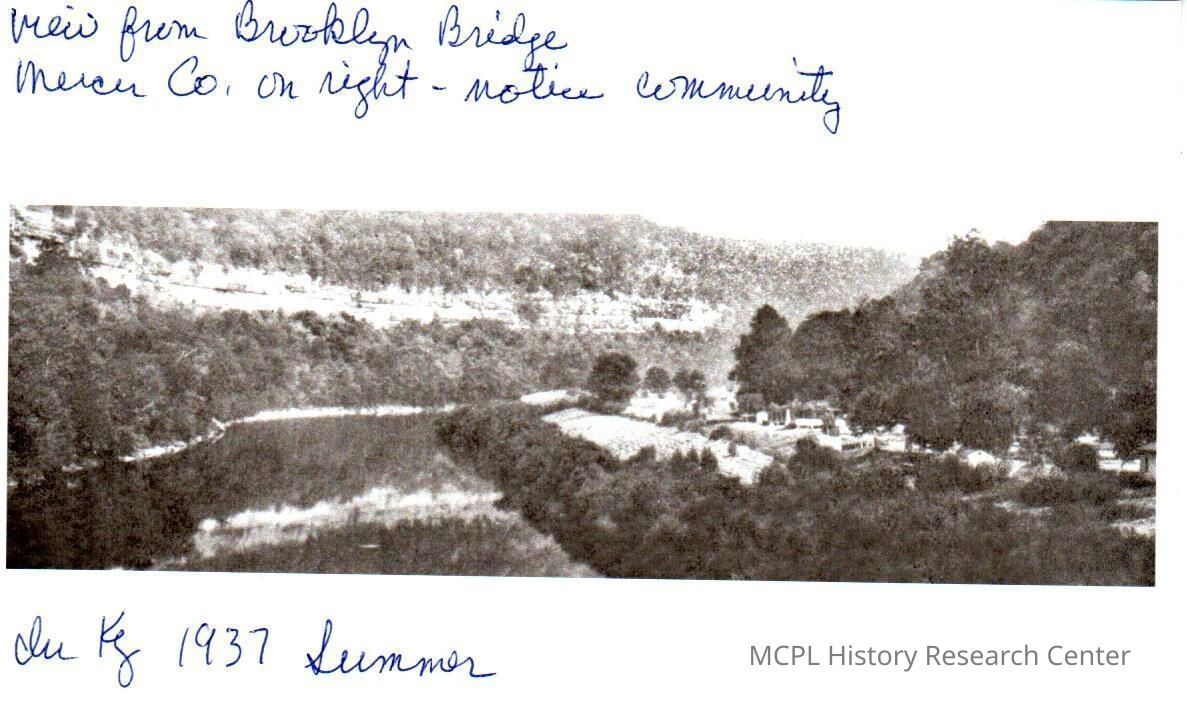 view from Brooklyn Bridge
Mercer Co. on right - notice community
In Ky 1937 Summer
MCPL History Research Center